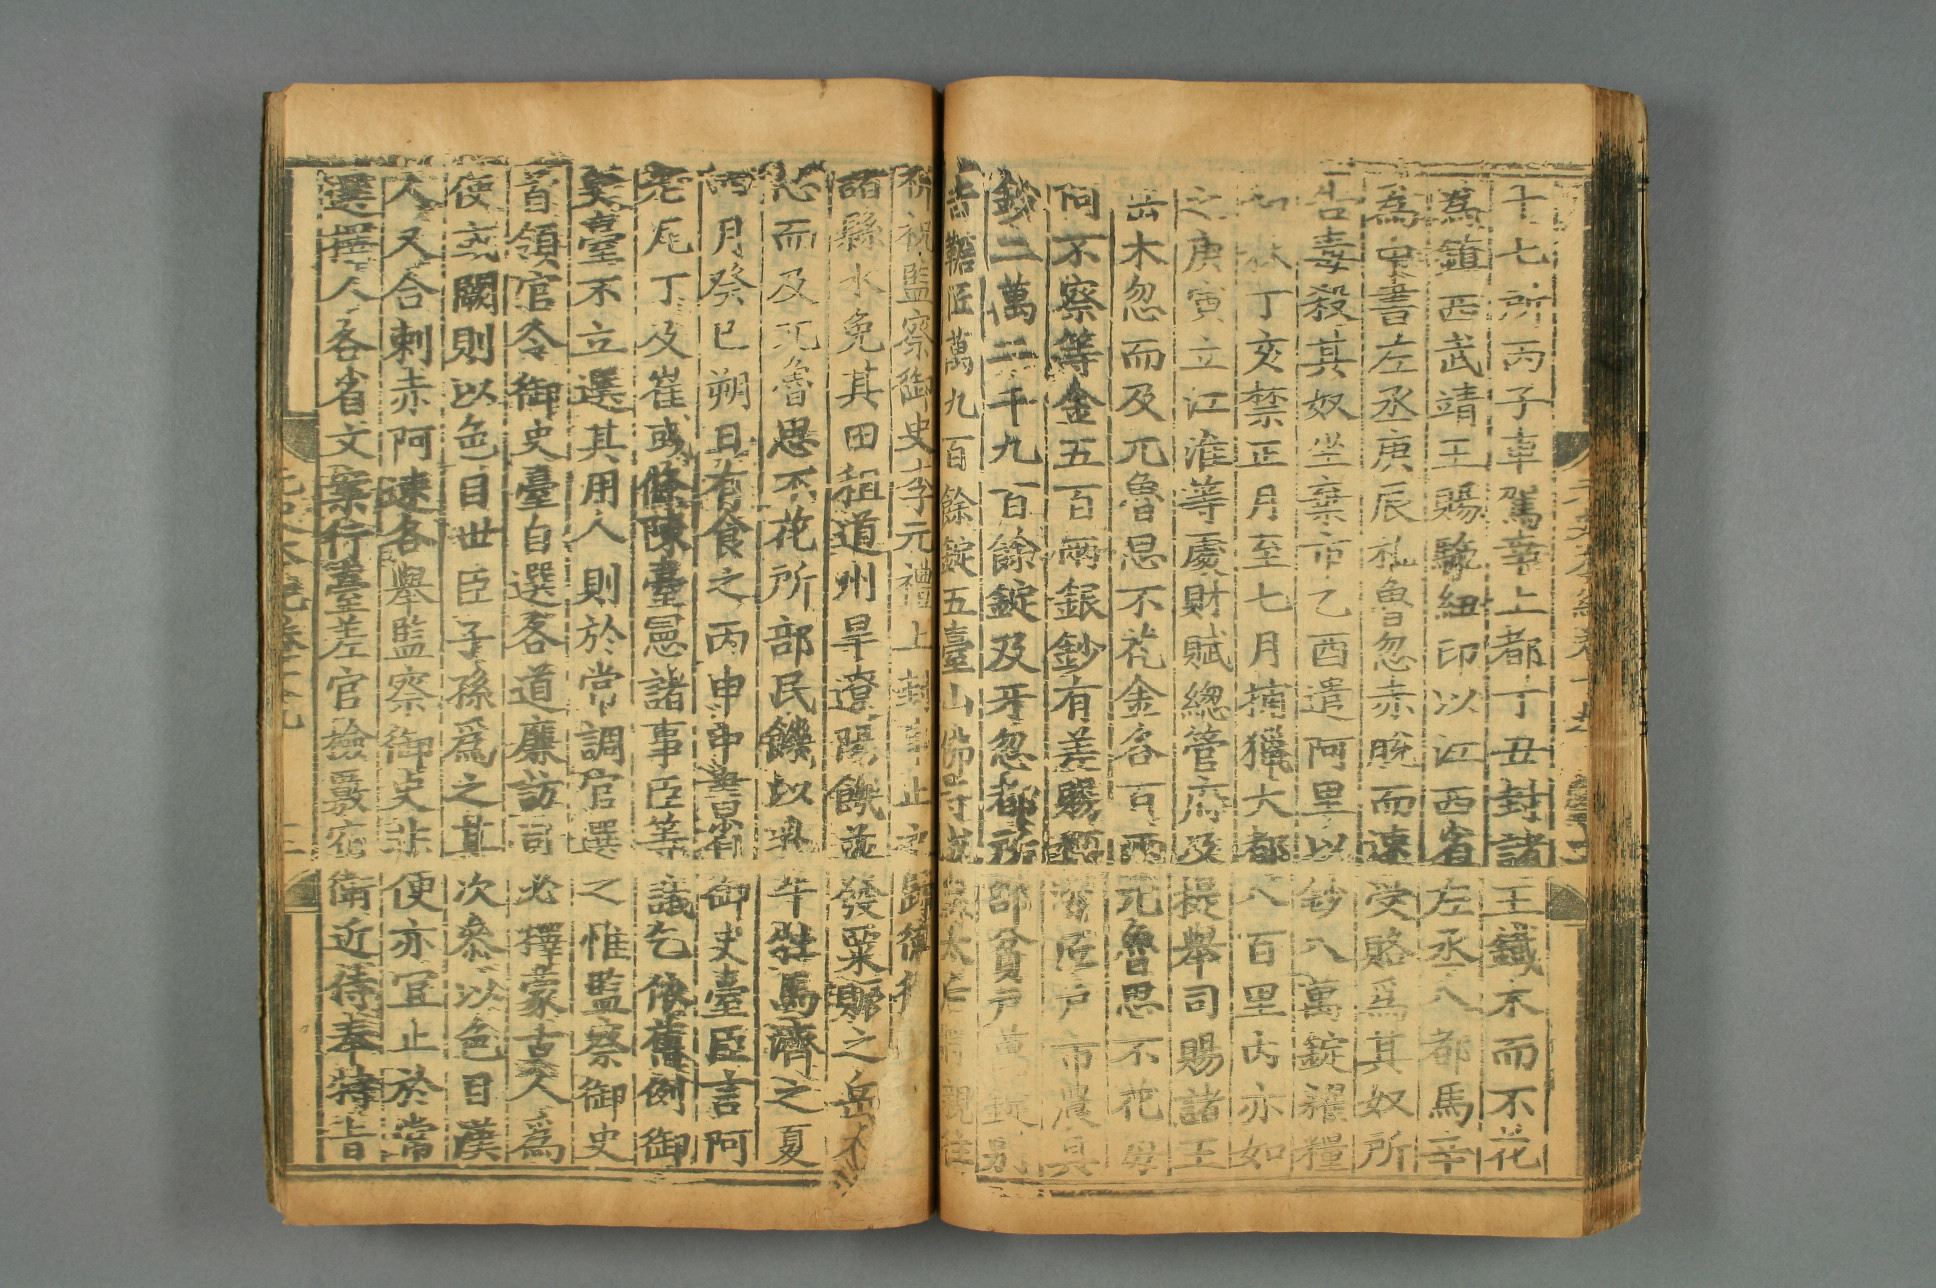 十七所丙子車駕幸上都丁丑封諸王鐵木而不花
為鎮西武靖王賜駝紐印以江西省左丞八都馬辛
為中書左丞庚辰札魯忽赤脫而速受賂為其奴所
告毒殺其奴坐棄市乙酉遣阿里以鈔八萬錠糴糧
和林丁亥禁正月至七月捕獵大都八百里內亦如
之庚寅立江淮等處財賦總管府及提舉司賜諸王
岳木忽而及兀魯思不花金各百兩兀魯思不花母
阿不察等金五百兩銀鈔有差賜 匠戶市農具
鈔二萬二千九百餘錠及牙忽都所部貧戶萬錠別
吉 匠萬九百餘錠五臺山佛寺成 太后 親往
祈祝監察御史李元禮上封事止之歸德徐
諸縣水免其田租道州旱遼陽饑並發粟賑之岳木
忽而及兀魯思不花所部民饑以乳牛牡馬濟之夏
四月癸巳朔日有食之丙申中書省御史臺臣言阿
老瓦丁及崔彧條陳臺憲諸事臣等議乞依舊例御
史臺不立選其用人則於常調官選之惟監察御史
首領官令御史臺自選各道廉訪司必擇蒙古人為
使或闕則以色目世臣子孫為之其次參以色目漢
人又合剌赤阿速各舉監察御史非便亦宜止於常
選擇人各省文案行臺差官檢覈宿衛近侍奉特旨